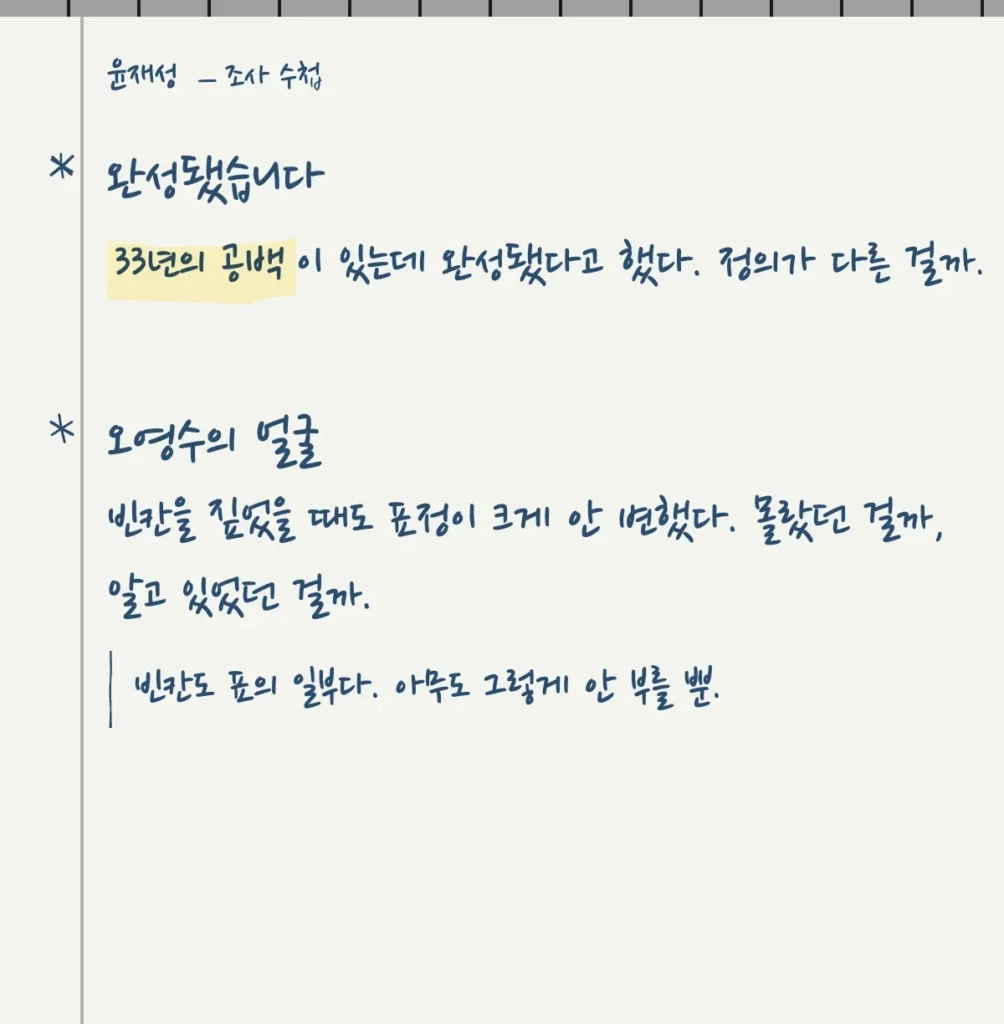 윤재성 – 조사 수첩
* 완성됐습니다
33년의 공백이 있는데 완성됐다고 했다. 정의가 다른 걸까.
* 오영수의 얼굴
빈칸을 짚었을 때도 표정이 크게 안 변했다. 몰랐던 걸까,
알고 있었던 걸까.
빈칸도 표의 일부다. 아무도 그렇게 안 부를 뿐.